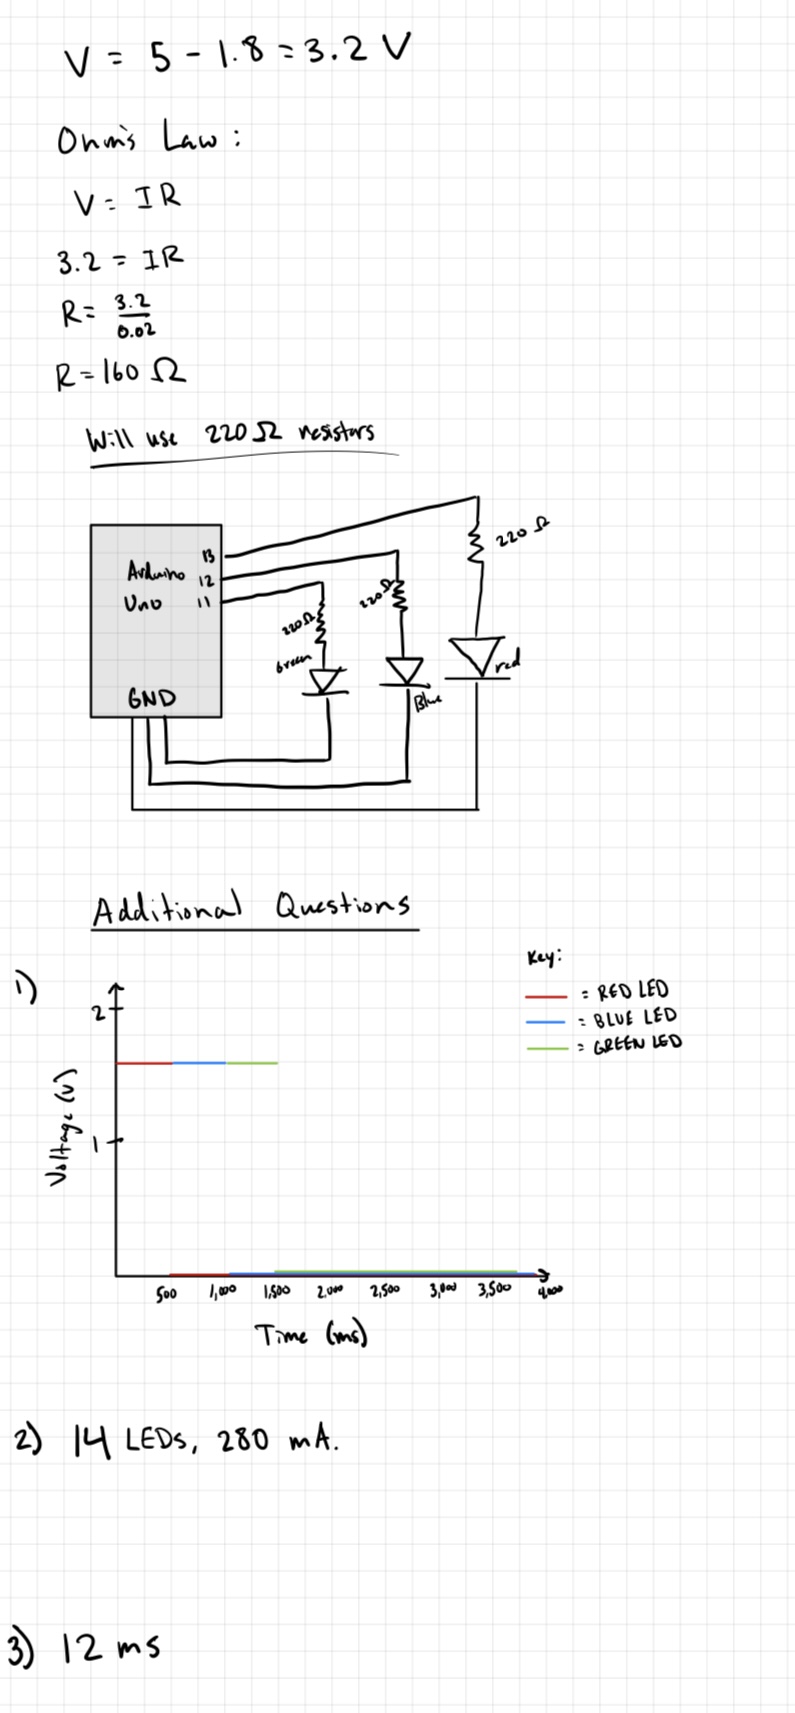 V = 5 - 1.8 = 3.2 V
Ohm's Law :
V = IR
3.2 = IR
R = 3.2
0.02
R = 160 Ω
Will use 220 Ω resistors
13
220 Ω
Arduino 12
Uno 11
220Ω
220Ω
Green
red
Blue
GND
Additional Questions
Key:
1)
= RED LED
2
= BLUE LED
= GREEN LED
Voltage (V)
1
500 1,000 1,500 2,000 2,500 3,000 3,500 4,000
Time (ms)
2) 14 LEDs, 280 mA.
3) 12 ms